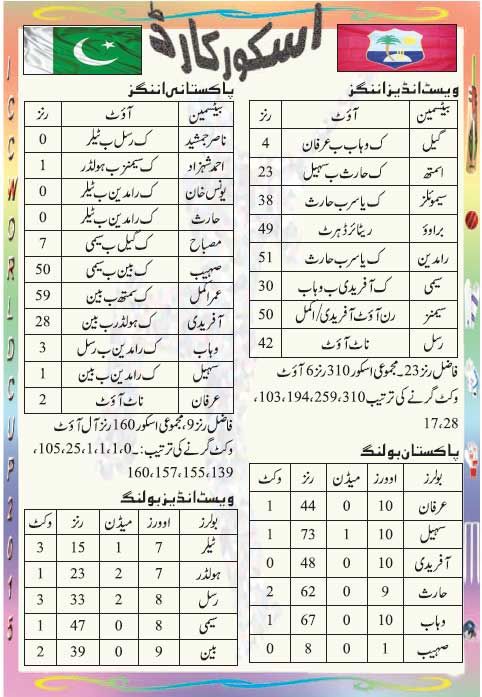 اسکور کارڈ
ویسٹ انڈیز اننگز
بیٹسمین آؤٹ رنز
گیل ک وہاب ب عرفان 4
اسمتھ ک حارث ب سہیل 23
سیموئلز ک یاسر ب حارث 38
براوو ریٹائرڈ ہرٹ 49
رامدین ک یاسر ب حارث 51
سیمی ک آفریدی ب وہاب 30
سیمنز رن آؤٹ آفریدی/اکمل 50
رسل ناٹ آؤٹ 42
فاضل رنز 23۔ مجموعی اسکور 310 رنز 6 آؤٹ
وکٹ گرنے کی ترتیب 310،259،194،103،
17،28
پاکستان بولنگ
بولرز اوورز میڈن رنز وکٹ
عرفان 10 0 44 1
سہیل 10 1 73 1
آفریدی 10 0 48 0
حارث 9 0 62 2
وہاب 10 0 67 1
صہیب 1 0 8 0
پاکستانی اننگز
بیٹسمین آؤٹ رنز
ناصر جمشید ک رسل ب ٹیلر 0
احمد شہزاد ک سیمنز ب ہولڈر 1
یونس خان ک رامدین ب ٹیلر 0
حارث ک رامدین ب ٹیلر 0
مصباح ک گیل ب سیمی 7
صہیب ک بین ب سیمی 50
عمر اکمل ک سمتھ ب بین 59
آفریدی ک ہولڈر ب بین 28
وہاب ک رامدین ب رسل 3
سہیل ک رامدین ب بین 1
عرفان ناٹ آؤٹ 2
فاضل رنز 9، مجموعی اسکور 160 رنز آل آؤٹ
وکٹ گرنے کی ترتیب:۔ 0،1،1،1،25،105،
139،155،157،160
ویسٹ انڈیز بولنگ
بولرز اوورز میڈن رنز وکٹ
ٹیلر 7 1 15 3
ہولڈر 7 2 23 1
رسل 8 2 33 3
سیمی 8 0 47 1
بین 9 0 39 2
ICC WORLD CUP 2015